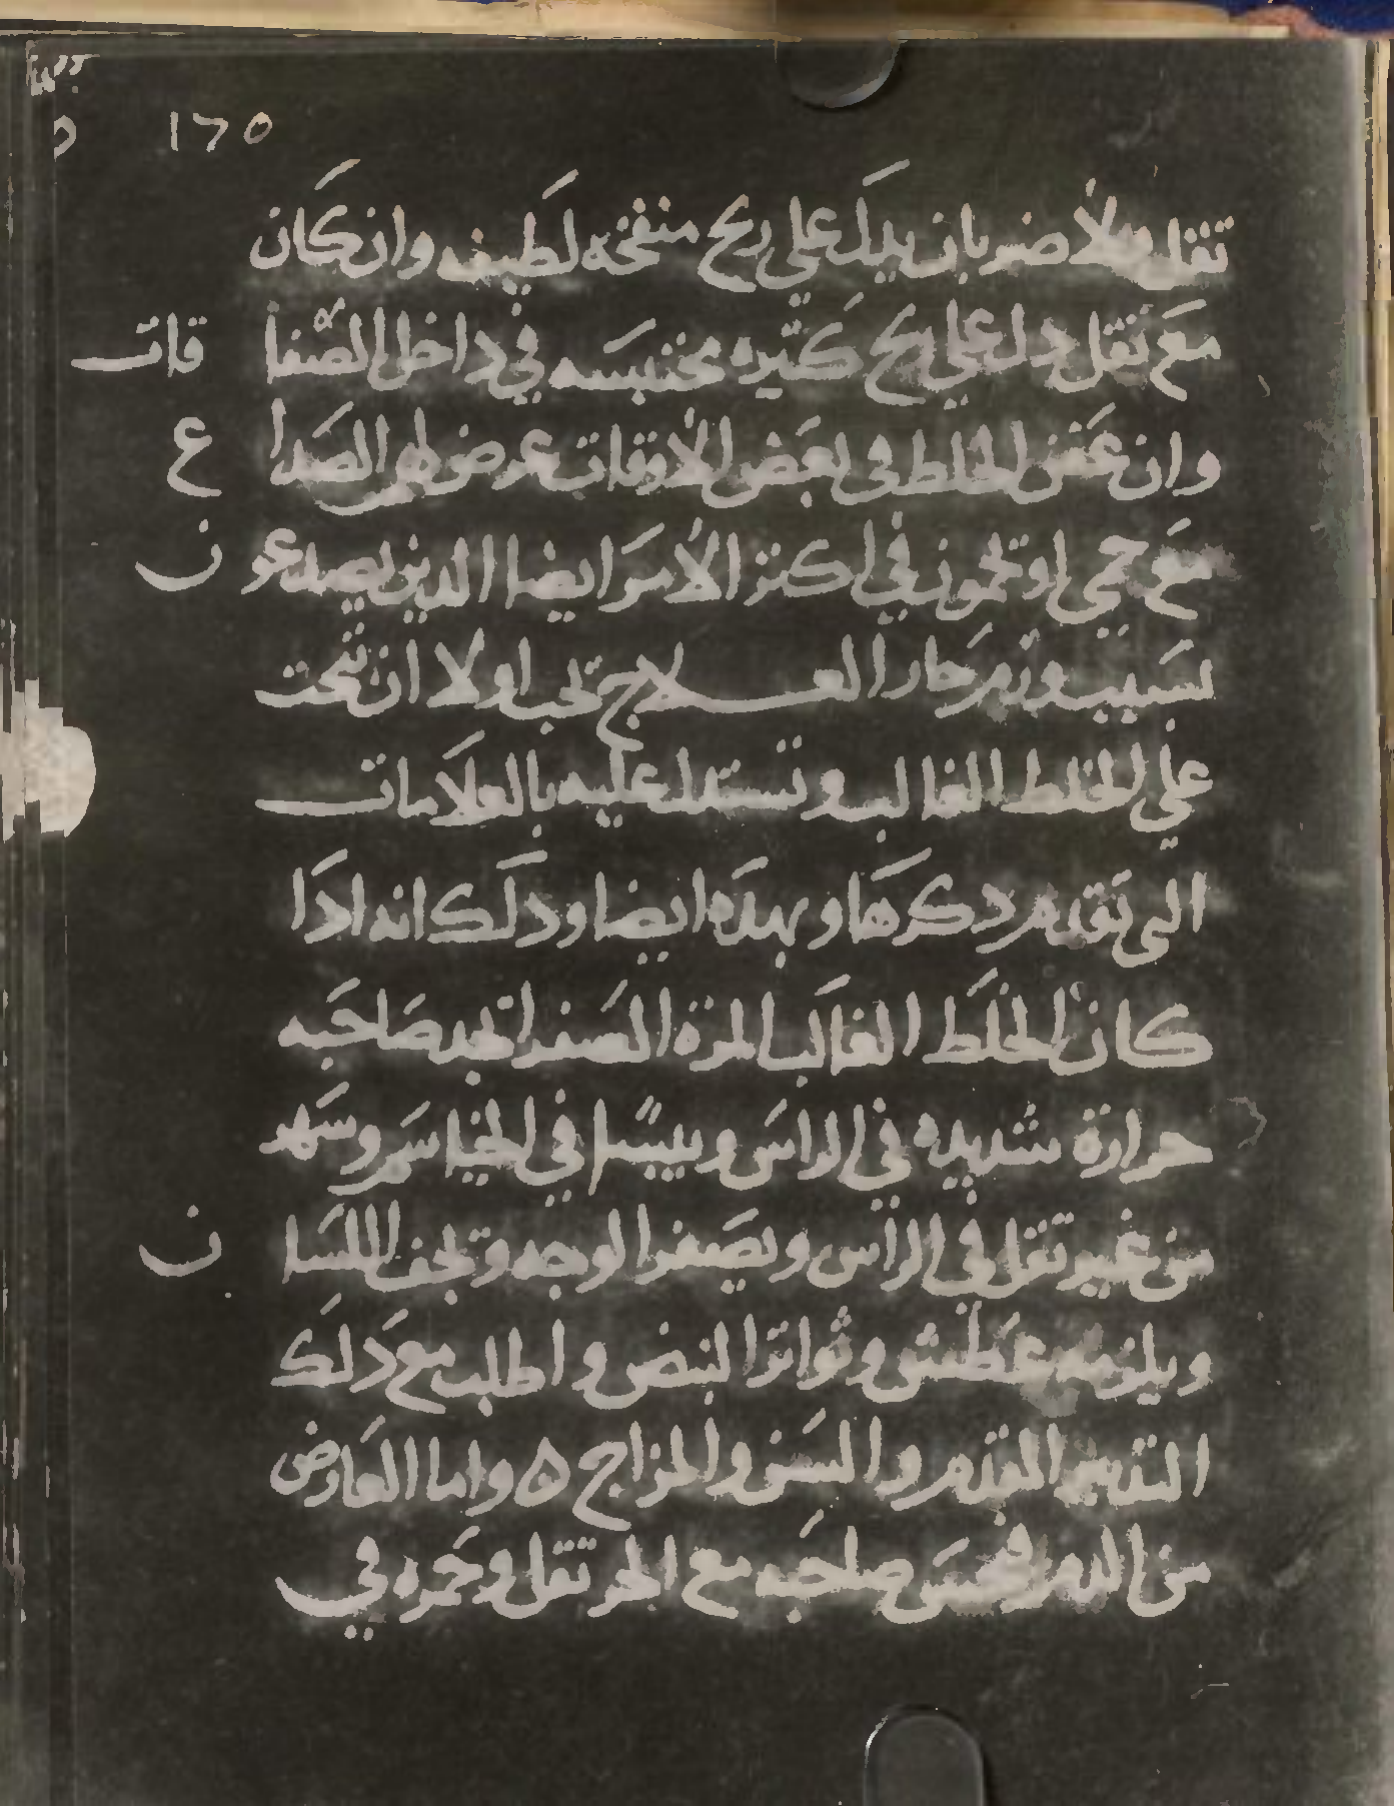 ١٦٥
ثقل ولا ضربان يدل على ريح منفخه لطيفه وان كان
مع ثقل دل على ريح كثيره محتبسه في داخل الصفا قات
وان عفن الخلط في بعض الاوقات عرض لهم الصدا ع
مع حمى او تحمون في اكثر الامر ايضا الدين يصدعو ن
بسبب ورم حار العلاج تجب اولا ان تبحث
على الخلط الغالب وتستدل عليه بالعلامات
التى تقدم دكرها وبهده ايضا ودلك انه ادا
كان الخلط الغالب المرة الصفرا تجد صاحبه
حرارة شديده في الراس ويبسًا في الخياسم وسهد
من غير ثقل في الراس ويصفر الوجه وتجف اللسا ن
ويلزمه عطش وتواتر النبض واطلب مع دلك
التدبير المقدم والسن والمزاج ۞ واما العارض
من الدم فيحس صاحبه مع الحر ثقل وحمره في